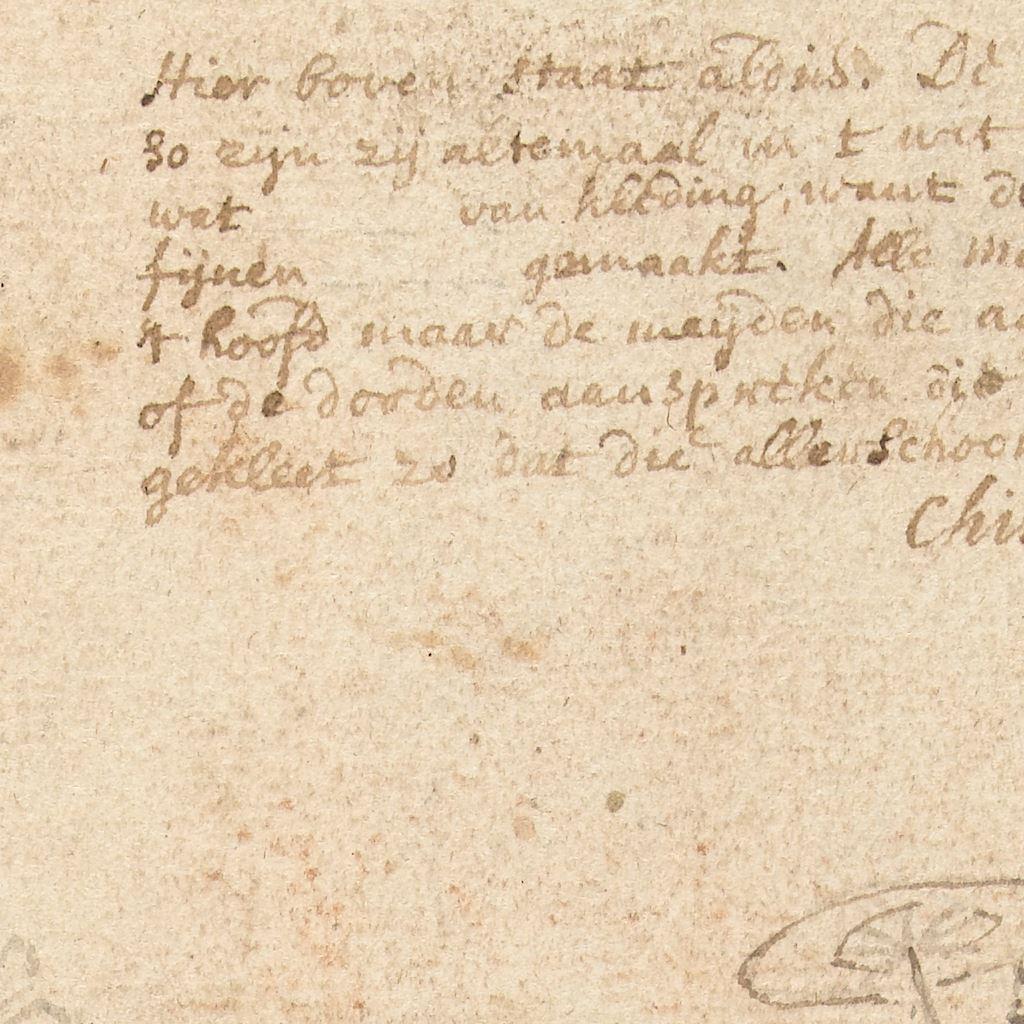 Hier boven staat alons. De
so zijn zij altemaal in t wit
wat van kleding, want de
fijnen gemaakt. Alle
't hoofd maar de meijden die
of de dooden aanspreken die
gekleet zo dat die allen schoon
Chi